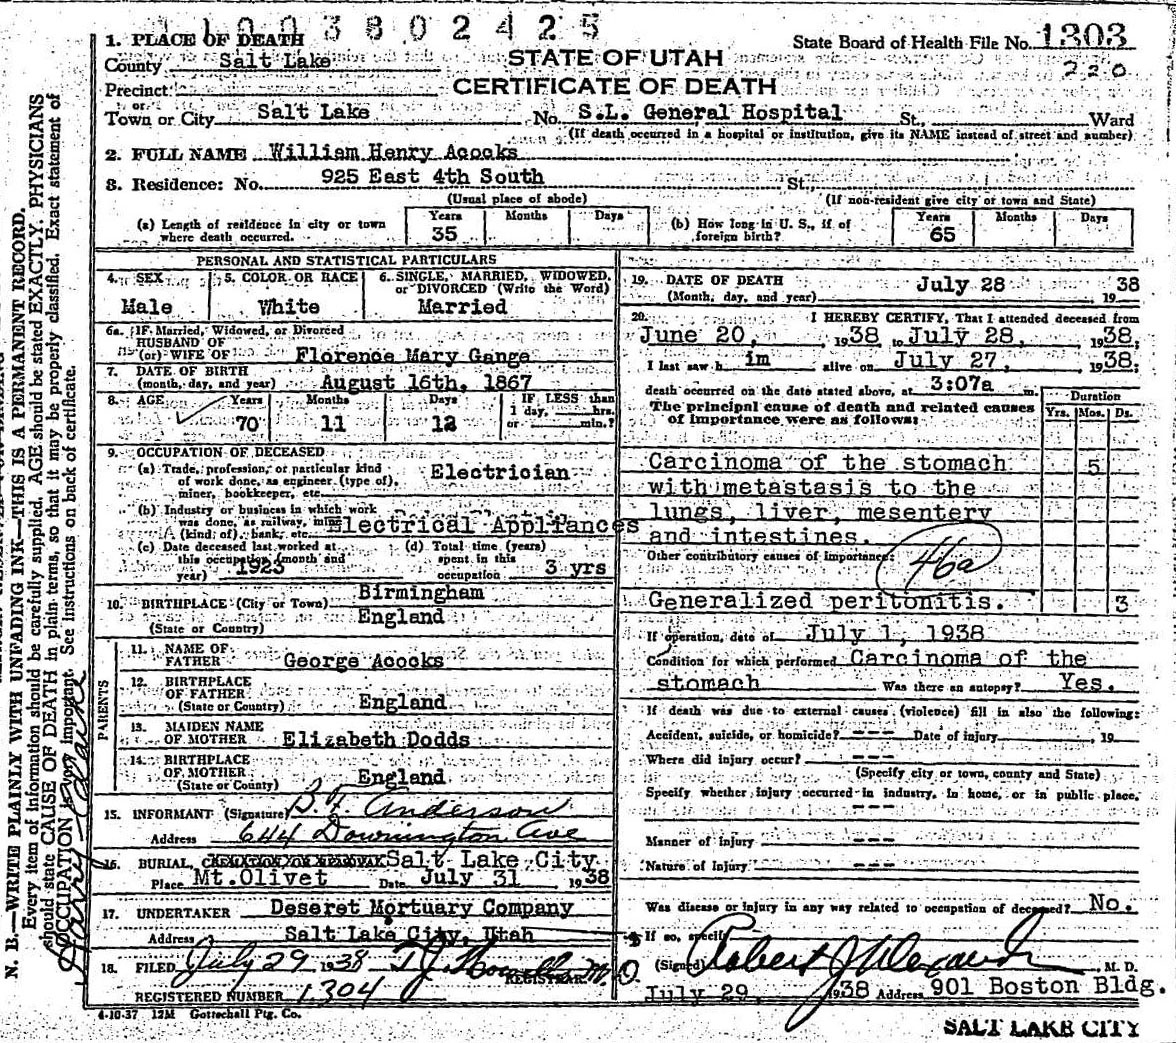 1 1 0 0 3 8 0 2 4 2 5
1. PLACE OF DEATH
County Salt Lake
STATE OF UTAH
CERTIFICATE OF DEATH
State Board of Health File No. 1303
220
Precinct
or
Town or City Salt Lake No. S.L. General Hospital St., Ward
(If death occurred in a hospital or institution, give its NAME instead of street and number)
2. FULL NAME William Henry Acocks
3. Residence: No. 925 East 4th South St.,
(Usual place of abode) (If non-resident give city or town and State)
(a) Length of residence in city or town where death occurred. Years 35 Months Days
(b) How long in U. S., if of foreign birth? Years 65 Months Days
PERSONAL AND STATISTICAL PARTICULARS
4. SEX Male
5. COLOR OR RACE White
6. SINGLE, MARRIED, WIDOWED, or DIVORCED (Write the Word) Married
6a. IF Married, Widowed, or Divorced
HUSBAND OF
(or) WIFE OF Florence Mary Gange
7. DATE OF BIRTH
(month, day, and year) August 16th, 1867
8. AGE Years 70 Months 11 Days 12 IF LESS than 1 day, hrs. or min.?
9. OCCUPATION OF DECEASED
(a) Trade, profession, or particular kind of work done, as engineer (type of), miner, bookkeeper, etc. Electrician
(b) Industry or business in which work was done, as railway, mine (kind of), bank, etc. Electrical Appliances
(c) Date deceased last worked at this occupation (month and year) 1923
(d) Total time (years) spent in this occupation 3 yrs
10. BIRTHPLACE (City or Town) Birmingham
(State or Country) England
PARENTS
11. NAME OF FATHER George Acocks
12. BIRTHPLACE OF FATHER
(State or Country) England
13. MAIDEN NAME OF MOTHER Elizabeth Dodds
14. BIRTHPLACE OF MOTHER
(State or County) England
15. INFORMANT (Signature) B. F. Anderson
Address 644 Downington Ave
16. BURIAL, CREMATION OR REMOVAL Salt Lake City
Place Mt. Olivet Date July 31 1938
17. UNDERTAKER Deseret Mortuary Company
Address Salt Lake City, Utah
18. FILED July 29 1938 T. J. Howells M.D.
REGISTRAR
REGISTERED NUMBER 1304
4-10-37 12M Gottschall Ptg. Co.
19. DATE OF DEATH
(Month, day, and year) July 28 1938
20. I HEREBY CERTIFY, That I attended deceased from
June 20, 1938 to July 28, 1938;
I last saw h im alive on July 27, 1938;
death occurred on the date stated above, at 3:07a m.
The principal cause of death and related causes of importance were as follows:
Duration
Yrs. Mos. Ds.
Carcinoma of the stomach 5
with metastasis to the
lungs, liver, mesentery
and intestines.
Other contributory causes of importance:
46a
Generalized peritonitis. 3
If operation, date of July 1, 1938
Condition for which performed Carcinoma of the
stomach Was there an autopsy? Yes.
If death was due to external causes (violence) fill in also the following:
Accident, suicide, or homicide? --- Date of injury , 19
Where did injury occur? ---
(Specify city or town, county and State)
Specify whether injury occurred in industry, in home, or in public place.
---
Manner of injury ---
Nature of Injury ---
Was disease or injury in any way related to occupation of deceased? No.
If so, specify
(Signed) Robert J Alexander, M. D.
July 29, 1938 Address 901 Boston Bldg.
SALT LAKE CITY
N. B.—WRITE PLAINLY WITH UNFADING INK—THIS IS A PERMANENT RECORD.
Every item of information should be carefully supplied. AGE should be stated EXACTLY. PHYSICIANS
should state CAUSE OF DEATH in plain terms, so that it may be properly classified. Exact statement of
OCCUPATION is very important. See instructions on back of certificate.